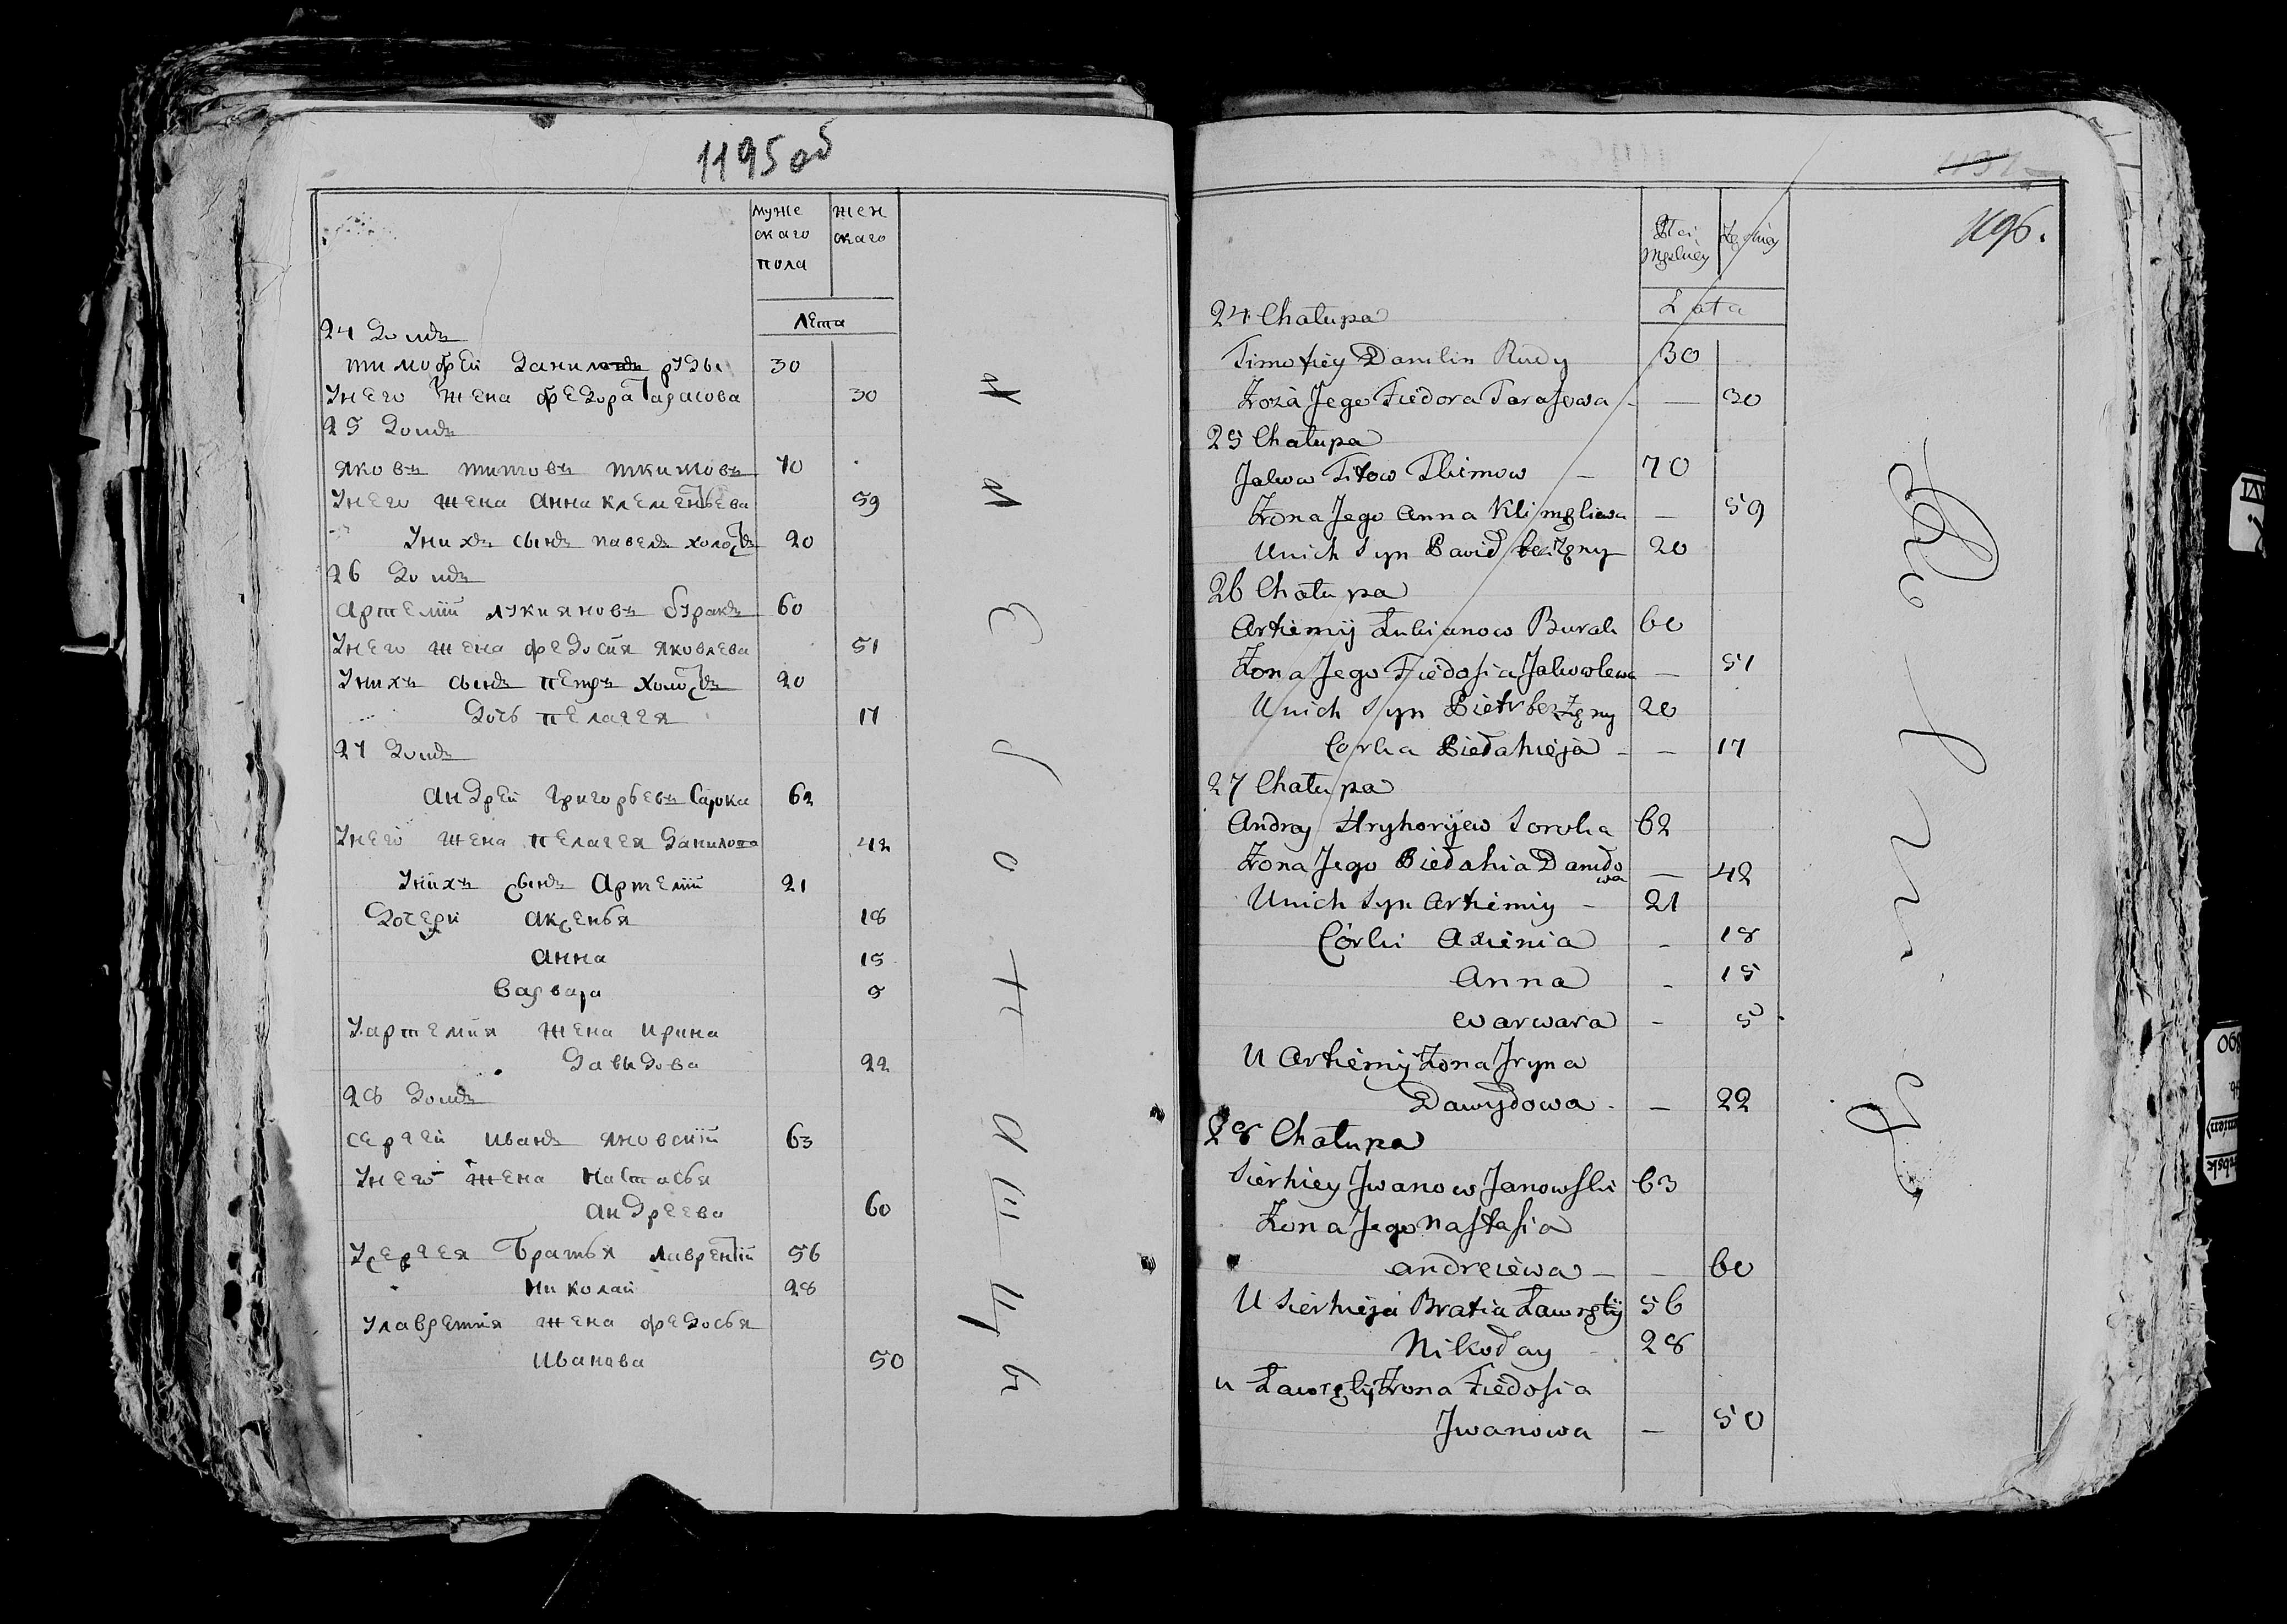 1195 об
муже
скаго
пола
жен
скаго
лета
24 Домъ
тимофей Данилов руды 30
Унего жена федора Тарасова 30
25 Домъ
яковъ титовъ ткимовъ 70
Унего жена анна клементьева 59
Унихъ сынъ павелъ холостъ 20
26 Домъ
артемий лукияновъ буракъ 60
Унего жена федосия яковлева 51
Унихъ сынъ петръ холостъ 20
Дочь пелагея 17
27 Домъ
андрей григорьевъ Сарока 62
Унего жена пелагея Данилова 42
Унихъ сынъ артемий 21
Дочери аксенья 18
анна 15
варвара 5
Уартемия жена ирина
Давыдова 22
28 Домъ
сергей иванъ яновский 63
Унего жена настасья
андреева 60
Усергея братья лаврентий 56
николай 28
Улавретия жена федосья
иванова 50
1196.
Płci
Lata
24 Chałupa
Timofiey Danilin Rudy 30
Żoza Jego Fiedora Tarasowa - — 30
25 Chałupa
Jakow Titow Tkimow — 70
Żona Jego Anna — 59
Unich Syn Paweł bezżeny 20
26 Chałupa
Artiemij Łukianow Burak 60
Żona Jego Fiedosia Jakowlewa — 51
Unich Syn Pietr bezżeny 20
Corka Piełahieja - — 17
27 Chałupa
Andrey Hryhoryjew Soroka 62
Żona Jego Piełahia Daniło
wa — 42
Unich Syn Artiemiy - 21
Córki Axienia - 18
Anna - 15
Warwara - 5
U Artiemij Żona Jryna
Dawydowa - — 22
28 Chałupa
Sierhiey Jwanow Janowski 63
Żona Jego Nastasia
Andreiewa — — 60
U Sierhieja Bratia Ławręty 56
Nikołay - 28
u Ławręty Żona Fiedosia
Jwanowa — 50